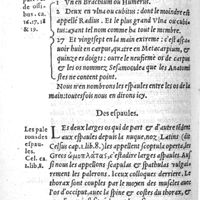 de ossib. ca.
16.17.18
& 19.
1 Vn en Brachium ou Humerus.
2 Deux en vlna ou cubitus, dont le moindre est
appellé Radius. Et le plus grand Vlna ou cubi-
tus: ayant le nom comme ha tout le membre.
27 Et vingtsept en la main extreme: c'est assa-
uoir huit en carpus, quatre en Metacarpium, &
quinze es doigts: outre le neufiesme os de carpus &
les os nommez Sesamoydea que les Anatomi
stes ne content point.
Nous n'en nombrons les espaules entre les os de la
main: toutesfois nous en dirons icy.
Des espaules.
Les pale
rons des
espau-
les.
Cel. ca
1. lib. 8.
Et deux larges os qui de part & d'autre tiennent
aux espaules depuis la nuque, non joints. (dit
Celsus cap. 1. lib. 8.) les appellent scoptula operta, les
Grecs ὠμοπλάτας, c'estadire larges espaules. Au
cuns les nomment scapulas & spathulas vulgai-
rement les palerons. leieux colloquez derriere. Le
thorax sont couplez par le moyen des muscles auec
l'os d'occiput, auec la spine & costes du thorax, &